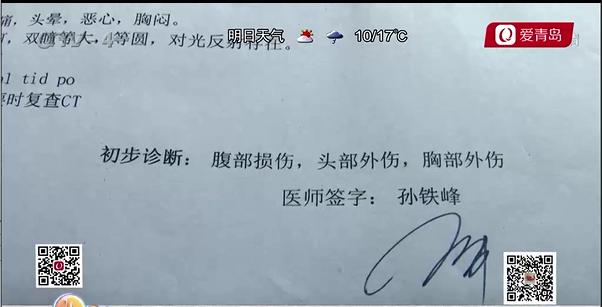 痛，头晕，恶心，胸闷。
双瞳等大，等圆，对光反射存在。
明日天气 10/17℃
爱青岛
al tid po
要时复查CT
初步诊断：腹部损伤，头部外伤，胸部外伤
医师签字：孙铁峰